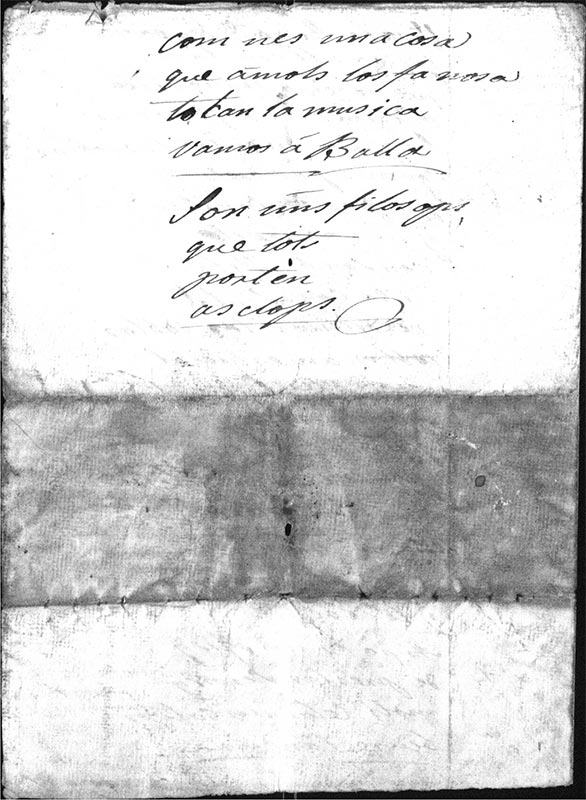 com nes una cosa
que ámols los fa nosa
tocan la musica
vamos á Balla
Son úns filosops,
que tots
portèn
asclops.